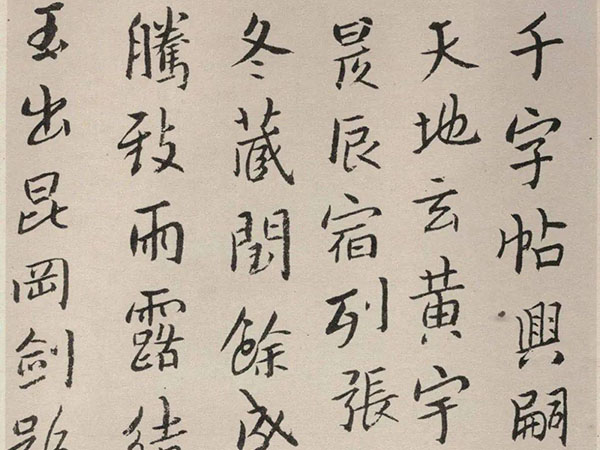 千字帖興嗣
天地玄黃宇
昃辰宿列張
冬藏閏餘成
騰致雨露結
玉出昆岡劍號